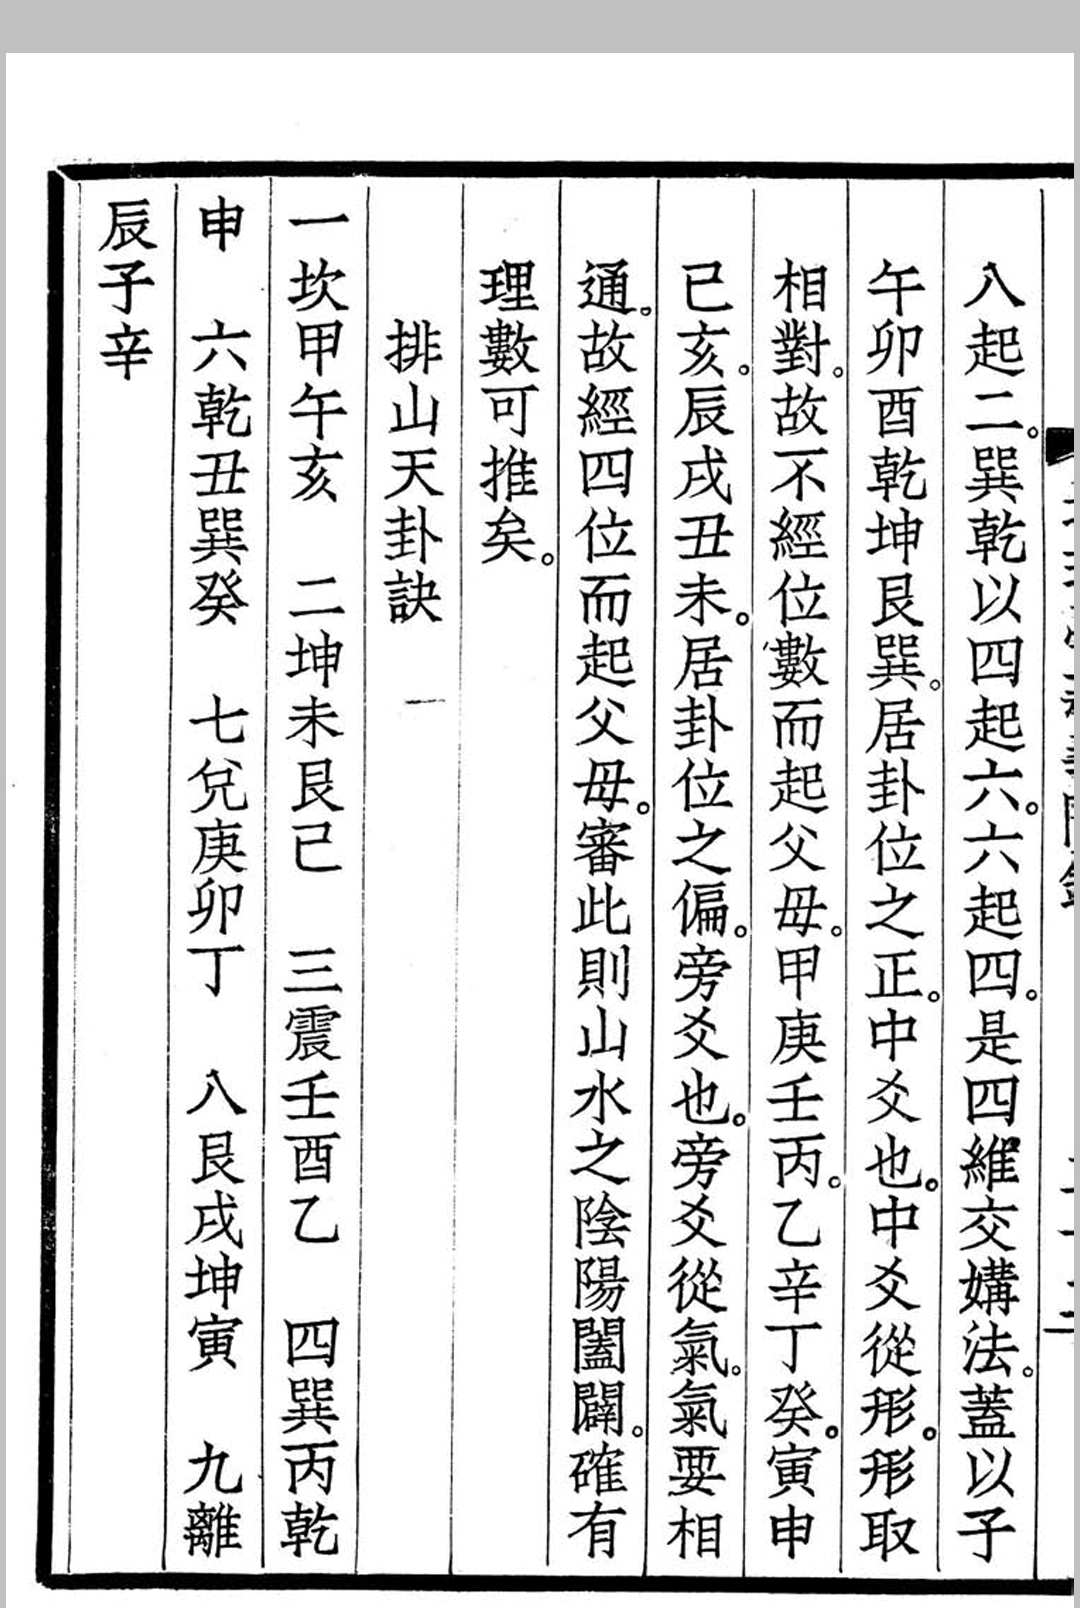 八起二。巽乾以四起六。六起四。是四維交媾法。蓋以子
午卯酉乾坤艮巽。居卦位之正。中爻也。中爻從形。形取
相對。故不經位數而起父母。甲庚壬丙。乙辛丁癸。寅申
已亥。辰戌丑未。居卦位之偏。旁爻也。旁爻從氣。氣要相
通。故經四位而起父母。審此則山水之陰陽闔闢。確有
理數可推矣。
排山天卦訣
一坎甲午亥　二坤未艮已　三震壬酉乙　四巽丙乾
申　六乾丑巽癸　七兌庚卯丁　八艮戌坤寅　九離
辰子辛